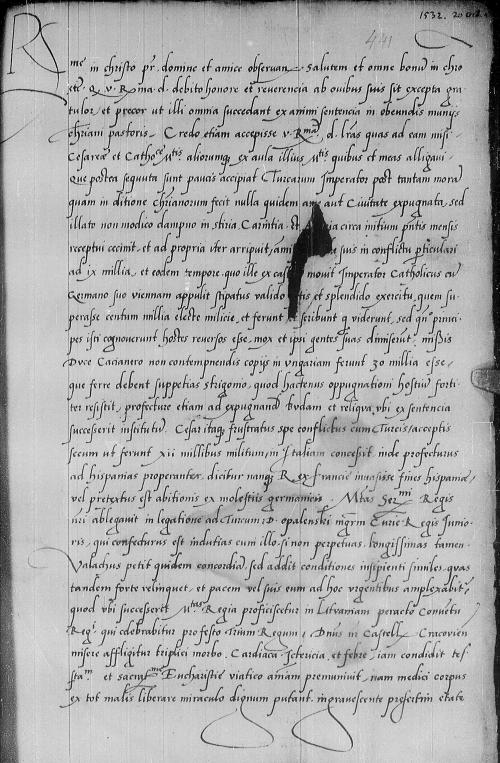 1532. 20 oct.
441
R
me in christo pr. domine et amice observan. salutem et omne bonum in chro
etc. q. v. Rma. d. debito honore et reverencia ab ovibus suis sit excepta gra
tulor, et precor ut illi omnia succedant ex animi sentencia in obeundis munijs
chriani pastoris. Credo etiam accepisse v. Rmam. d. lras quas ad eam misi
Cesareae et Cathoce Mtis aliorumque ex aula illius Mtis quibus et meas alligavi.
Que postea sequuta sunt paucis accipiat. Turcarum Imperator post tantam moram
quam in ditione chrianorum fecit nulla quidem aut Civitate expugnata, sed
illato non modico dampno in stiria Carintia et circa initium pntis mensis
receptui cecinit, et ad propria iter arripuit, suis in conflictu particulari
ad ix millia, et eodem tempore quo ille ex movit Imperator Catholicus cum
Germano suo viennam appulit stipatus valido et splendido exercitu, quem su
perasse centum millia electe milicie, et ferunt et scribunt qui viderunt, sed princi
pes isti cognoverunt hostes reversos esse, mox et ipsi gentes suas dimiserunt: missis
Duce Cacianero non contemnendis copijs in ungariam ferunt 30 millia esse,
que ferre debent suppetias strigonio, quod hactenus oppugnationi hostium forti
ter resistit, profecture etiam ad expugnand Budam et reliqua, ubi ex sentencia
successerit institutum. Cesar itaque frustratus spe conflictus cum Turcis, acceptis
secum ut ferunt xii millibus militum, in Italiam concessit, inde profecturus
ad hispanias properanter, dicitur nanque Rex francie invasisse fines hispanie,
vel pretextus est abitionis ex molestiis germanicis. Mtas Sermi Regis
nri ablegavit in legatione ad Turcum: D. opalenski mgrm Curie Regis Junio
ris, qui confecturus est indutias cum illo, si non perpetuas, longissimas tamen.
Valachus petit quidem concordiam, sed addit conditiones insipienti similes, quas
tandem forte relinquet, et pacem vel suis eum ad hoc urgentibus amplexabitur,
quod ubi successeret Mtas Regia proficiscetur in Litvaniam peracto Conventu
Regi. qui celebrabitur pro festo Trium Regum, Dnus in Castell Cracovien
misere affligitur triplici morbo. Cardiaca. Ictericia, et febre, iam condidit tes
stam. et sacramo Eucharistie viatico animam premunivit, nam medici corpus
ex tot malis liberare miraculo dignum putant. ingravescente presertim etate